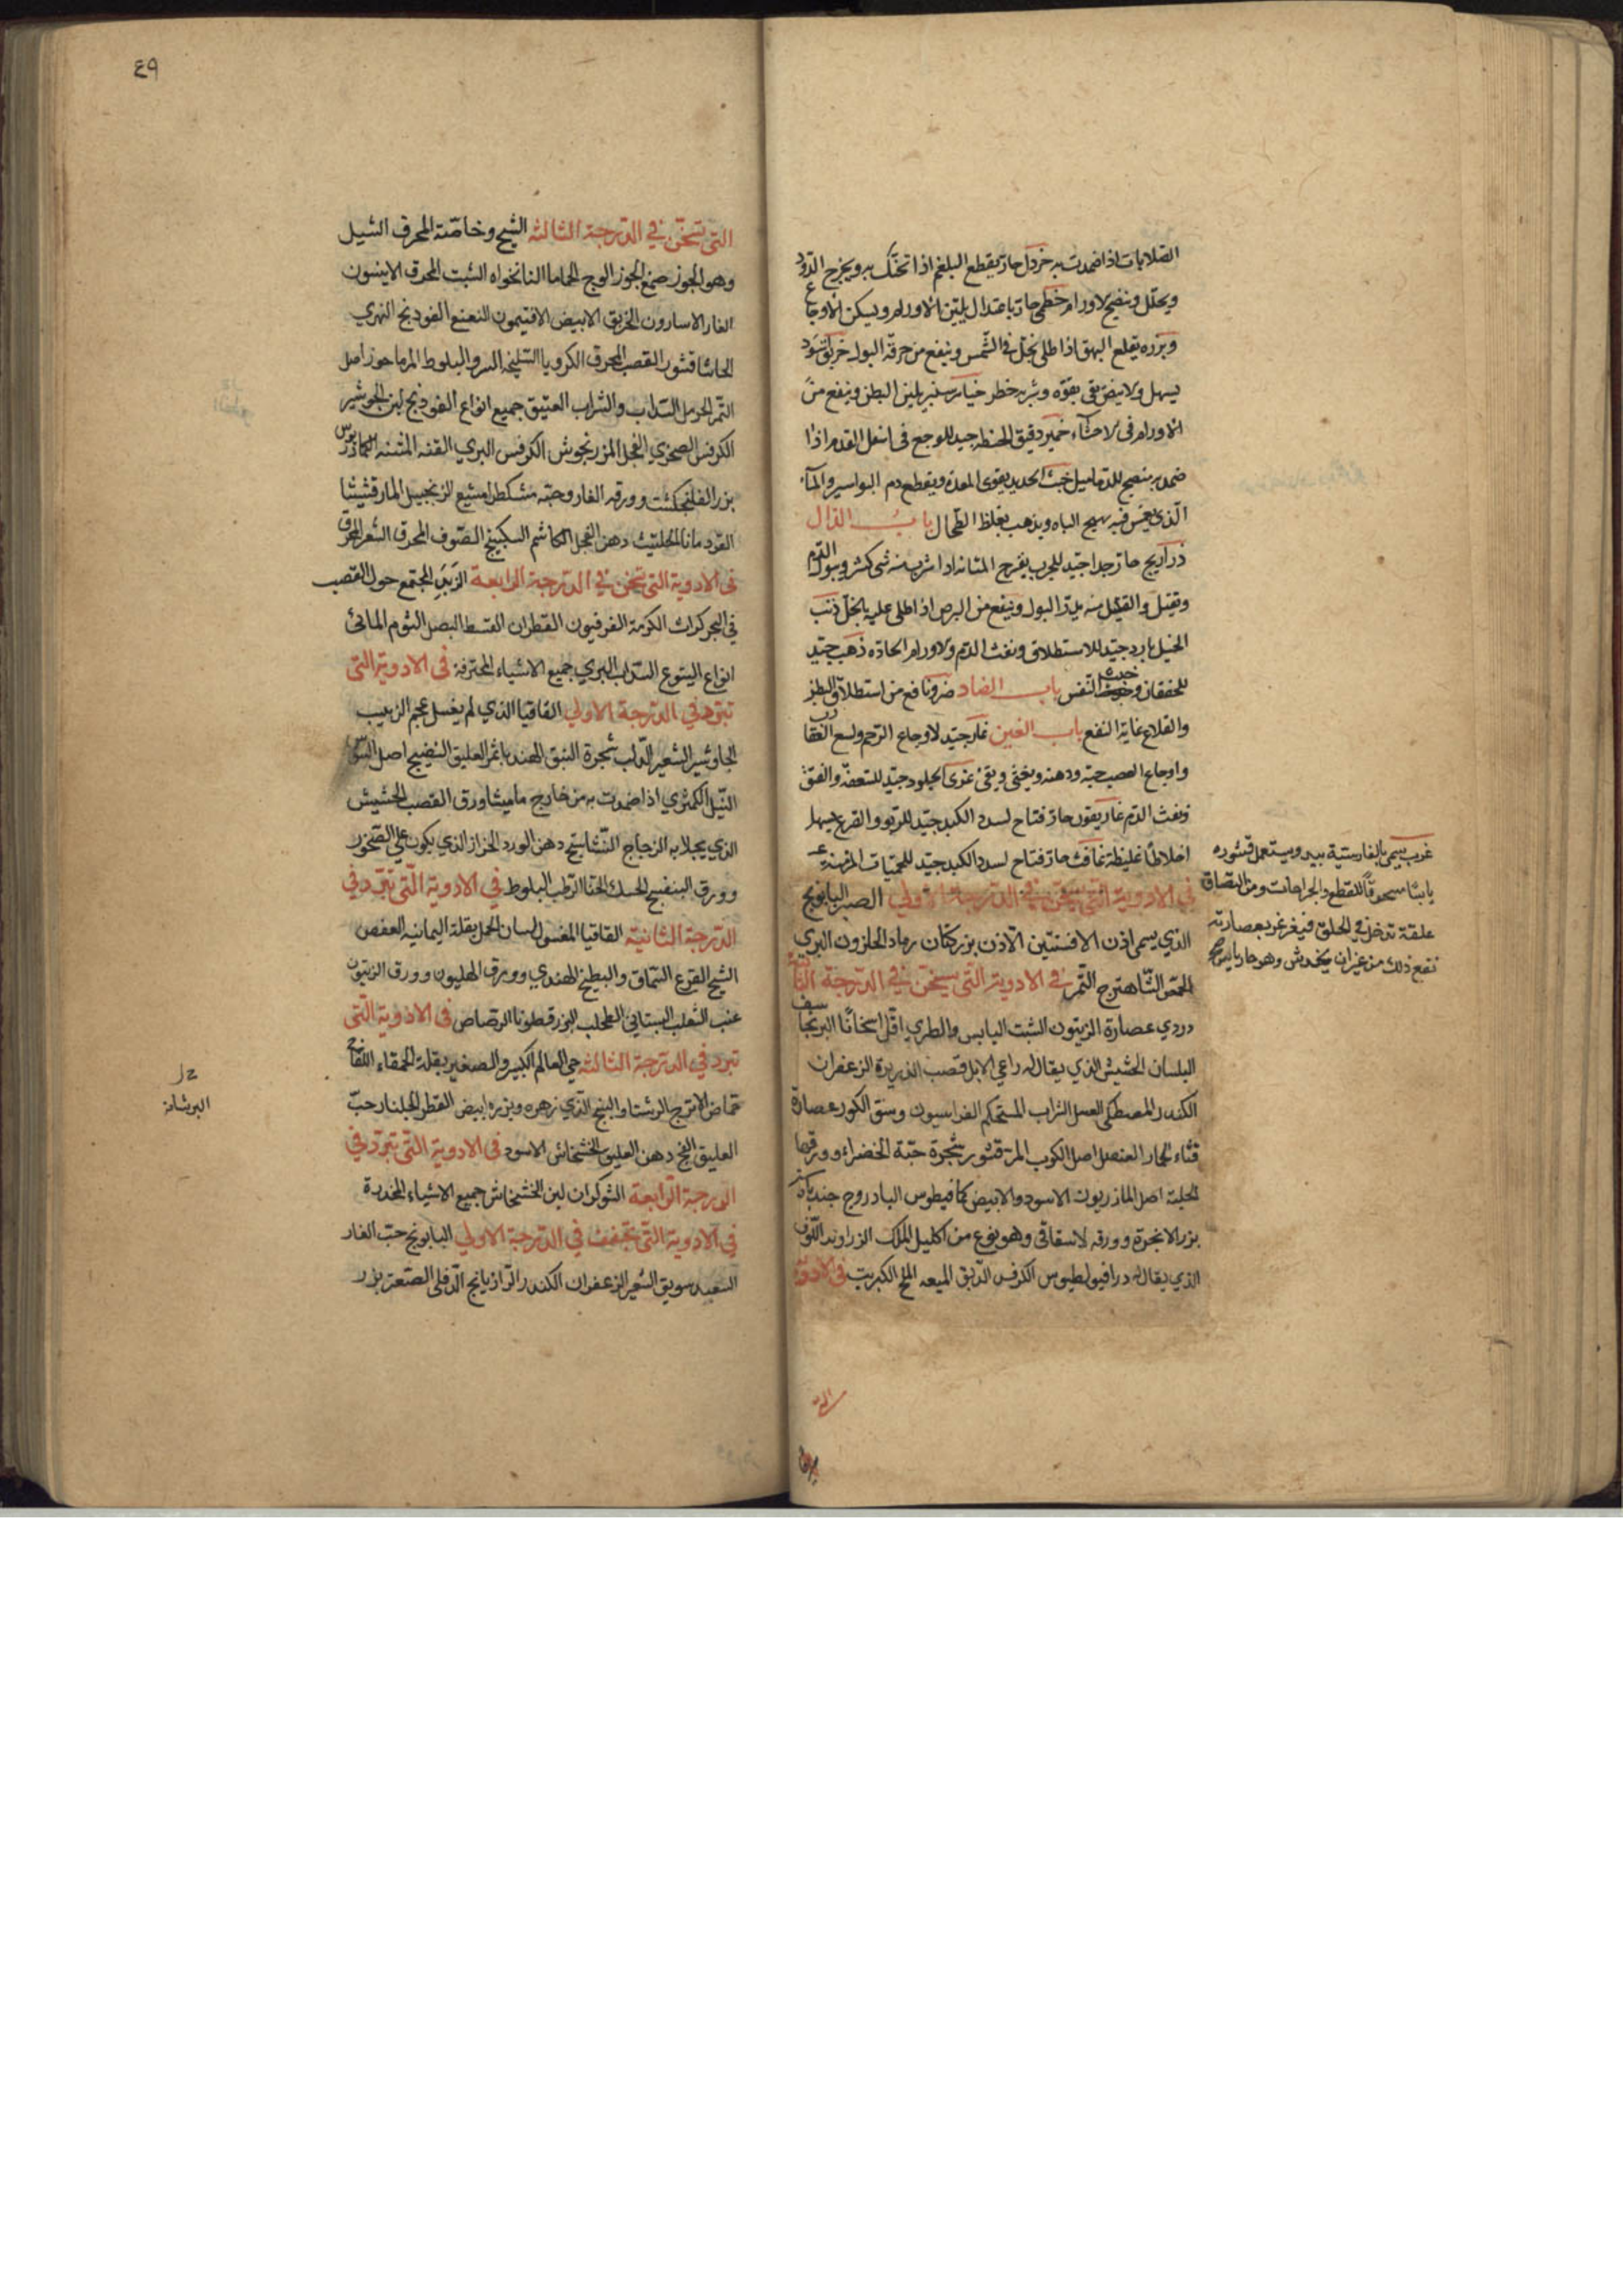 الصلابات اذا ضمدت به خردل حار يقطع البلغم اذا تحنك به ويخرج الدود
ويحلل وينضج الاورام خطمى حار باعتدال يلين الاورام ويسكن الاوجاع
وبزره يقلع البهق اذا طلى بخل فى الشمس وينفع من حرقة البول خربق اسود
يسهل والابيض يقى بقوه وشربه خطر خيار شنبر يلين البطن وينفع من
الاورام فى الاحشاء خمير دقيق الحنطه جيد للوجع فى اسفل القدم اذا
ضمد به منضج للدماميل خبث الحديد يقوى المعدة ويقطع دم البواسير والمآء
الذى يغمس فيه يهيج الباه ويذهب بغلظ الطحال باب الذال
ذراريح حار جدا جيد للجرب يقرح المثانه اذا شرب منه شى كثير ويبول الدم
ويقتل والقليل منه يدر البول وينفع من البرص اذا طلى عليه بالخل ذنب
الخيل بارد جيد للاستطلاق ونفث الدم والاورام الحادة ذهب جيد
للخفقان وخبث النفس باب الضاد ضرو نافع من استطلاق البطن
والقلاع غاية النفع باب الغين غار جيد لاوجاع الرحم ولسع العقارب
واوجاع العصب حبه ودهنه ويغثى ويقئ غرى الجلود جيد للسعفة والفتق
ونفث الدم غاريقون حار فتاح لسدد الكبد جيد للربو والقرع يسهل
اخلاطا غليظة غافث حار فتاح لسدد الكبد جيد للحميات المزمنة
فى الادوية التى تسخن فى الدرجة الاولى الصبر البابونج
الذى يسمى اذن الافسنتين الاذن بزر كتان رماد الحلزون البرى
الحمص الشاهترج التمر فى الادوية التى تسخن فى الدرجة الثانية
دردى عصارة الزيتون الشبت اليابس والطرى اقل اسخانا البرنجاسف
البلسان الحشيش الذى يقال له راعى الابل قصب الذريرة الزعفران
الكندر المصطكى العسل الشراب المستحكم الفراسيون وسق الكور عصارة
قثاء الحمار العنصل اصل الكرنب المر قشور شجرة حبة الخضراء وورقها
الحلبة اصل المازريون الاسود والابيض كمافيطوس البادروج جندبادستر
بزر الانجرة وورقه لاسقاقى وهو نوع من اكليل الملك الزراوند اللوف
الذى يقال له دراقيولطيوس الكرفس الدبق الميعه الملح الكبريت فى الادوية
غرب يسمى بالفارسية بيد ويستعمل قشوره
يابسا مسحوقا للقطع والجراحات ومن البصاق
علقة تدخل فى الحلق فيغرغر بعصارته
نفع ذلك من غير ان يخدش وهو حار يابس
٤٩
التى تسخن فى الدرجة الثالثة الشيح وخاصة المحرق الشيل
وهو الجوز صمغ الجوز الوج الحماما النانخواه الشبت المحرق الانيسون
الغار الاسارون الخربق الابيض الافتيمون النعنع الفودنج النهرى
الحاشا قشور القصب المحرق الكرويا السليخه السرو البلوط المرماحوز اصل
التمر الحرمل السذاب والشراب العتيق جميع انواع الفودنج لبن الجوشير
الكرفس الصخرى الفجل المرزنجوش الكرفس البرى القنه المنتنه الكمادريوس
بزر الفلنجكشت وورقه الغار وحبه مشكطرامشيع الزنجبيل المارقشيشا
القردمانا الحلتيت دهن الفجل الكاشم السكبينج الصوف المحرق الشعر المحرق
فى الادوية التى تسخن فى الدرجة الرابعة الزبد المجتمع حول القصب
فى البحر كراث الكرمة الفرفيون القطران القسط البصل الثوم المائى
انواع اليتوع السذاب البرى جميع الاشياء المحترقة فى الادوية التى
تبرد فى الدرجة الاولى القاقيا الذى لم يغسل عجم الزبيب
الجاوشير الشعير الدلب شجرة النبق الهندبا ثمر العليق النضيج اصل السوس
النيل الكمثرى اذا ضمدت به من خارج ماميثا ورق القصب الحشيش
الذى يجلا به الزجاج النشاستج دهن الورد الخزاز الذى يكون على الصخور
وورق البنفسج الحسك الحنا الرطب البلوط فى الادوية التى تبرد فى
الدرجة الثانية القاقيا المغسول لسان الحمل بقلة اليمانيه العفص
الشيح القرع السماق والبطيخ الهندى وورق الهليون وورق الزيتون
عنب الثعلب البستانى الطحلب البزر قطونا الرصاص فى الادوية التى
تبرد فى الدرجة الثالثة حى العالم الكبير والصغير بقلة الحمقاء اللفاح
حماض الاترج الرشتا والبنج الذى زهره وبزره ابيض الفطر الجلنار حب
العليق الفج دهن العليق الخشخاش الاسود فى الادوية التى تبرد فى
الدرجة الرابعة الشوكران لبن الخشخاش جميع الاشياء المخدرة
فى الادوية التى تجفف فى الدرجة الاولى البابونج حب الغار
السعبد سويق الشعير الزعفران الكندر الرازيانج الدفلى الصعتر بزر